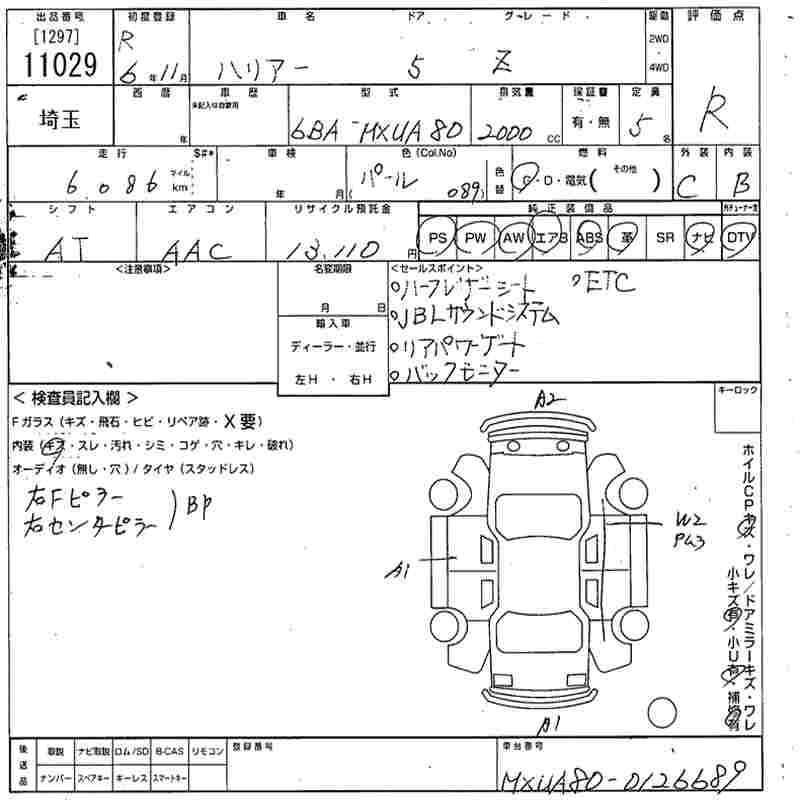 出品番号 初度登録 車名 ドア グレード 駆動 評価点
[1297] R 2WD
11029 6年11月 ハリアー 5 Z 4WD R
西暦 車歴 型式 排気量 保証書 定員
未記入は自家用
埼玉 年 6BA-MXUA80 2000 cc 有・無 5名
走行 S#* 車検 色(Col.No) 燃料 外装 内装
6,086 マイル km 年 月 パール (089) 色替 G・D・電気( その他 ) C B
シフト エアコン リサイクル預託金 純正装備品
AT AAC 13,110円 PS PW AW エアB ABS 革 SR ナビ DTV
<注意事項> 名変期限 <セールスポイント>
月 日 ハーフレザーシート ETC
輸入車 JBLサウンドシステム
ディーラー・並行 リアパワーゲート
左H・右H バックモニター
<検査員記入欄> キーロック
Fガラス(キズ・飛石・ヒビ・リペア跡・X要)
内装(キズ・スレ・汚れ・シミ・コゲ・穴・キレ・破れ)
オーディオ(無し・穴)/タイヤ(スタッドレス)
右Fピラー
右センターピラー BP
A2
W2
PW3
A1
A1
ホイルCPキズ・ワレ/ドアミラーキズ・ワレ
小キズ有・小U有・補修有
後送品 取説 ナビ取説 ロム/SD B-CAS リモコン 登録番号 車台番号
ナンバー スペアキー キーレス スマートキー MXUA80-0126689